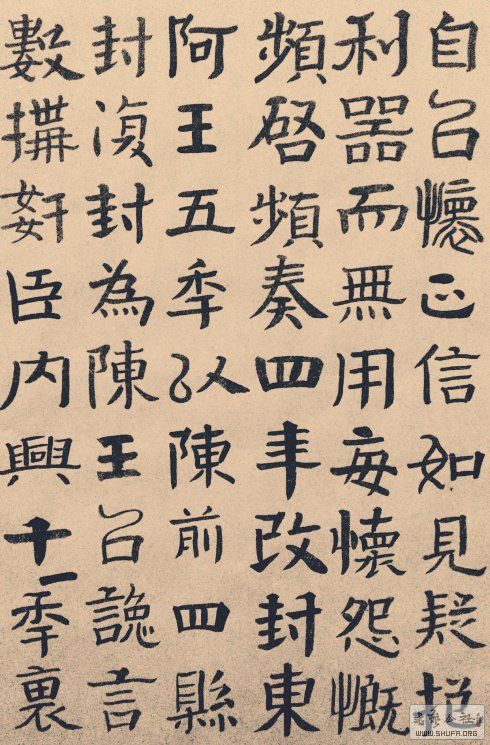 自㠯懷正信如見疑抱
利器而無用每懷怨慨
頻啓頻奏四年改封東
阿王五年以陳前四縣
封復封為陳王㠯讒言
數搆姧臣內興十一年裏
書法公社
WWW.SHUFA.ORG